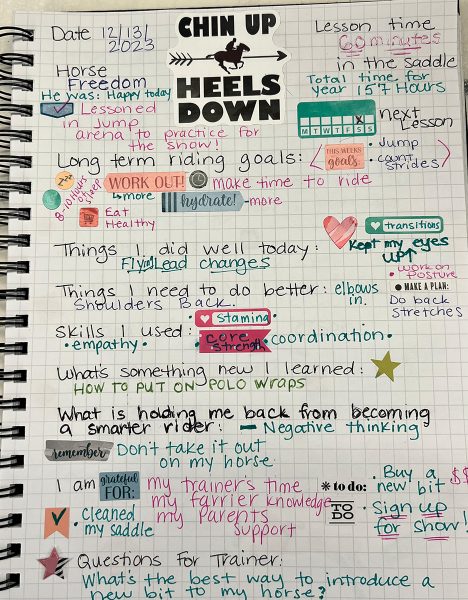 Date 12/13/2023
CHIN UP
HEELS DOWN
Lesson time
60 minutes
in the saddle
Total time for
year 157 Hours
Horse
Freedom
He was: Happy today
Lessoned
in Jump
arena to practice for
the show!
M T W T F S S
X
next
Lesson
Long term riding goals:
THIS WEEKS
goals:
• Jump
• count
strides
8-10 Hours
of sleep
WORK OUT!
more
make time to ride
hydrate! -more
Eat
Healthy
transitions
Things I did well today:
Kept my eyes
UP↑
Flying Lead changes
• work on
posture
Things I need to do better: elbows
in.
Shoulders Back.
• MAKE A PLAN:
Do back
stretches
Skills I used:
• stamina •
• empathy •
core
strength
coordination •
What's something new I learned:
HOW TO PUT ON POLO WRAPS
What is holding me back from becoming
a smarter rider: - Negative thinking
remember
Don't take it out
on my horse
I am grateful
FOR:
my trainer's time
my farrier knowledge
my Parents
support
• cleaned
my saddle
* to do:
• Buy a
new bit
$$
TO
DO
• Sign up
for show!
Questions For Trainer:
What's the best way to introduce a
new bit to my horse?